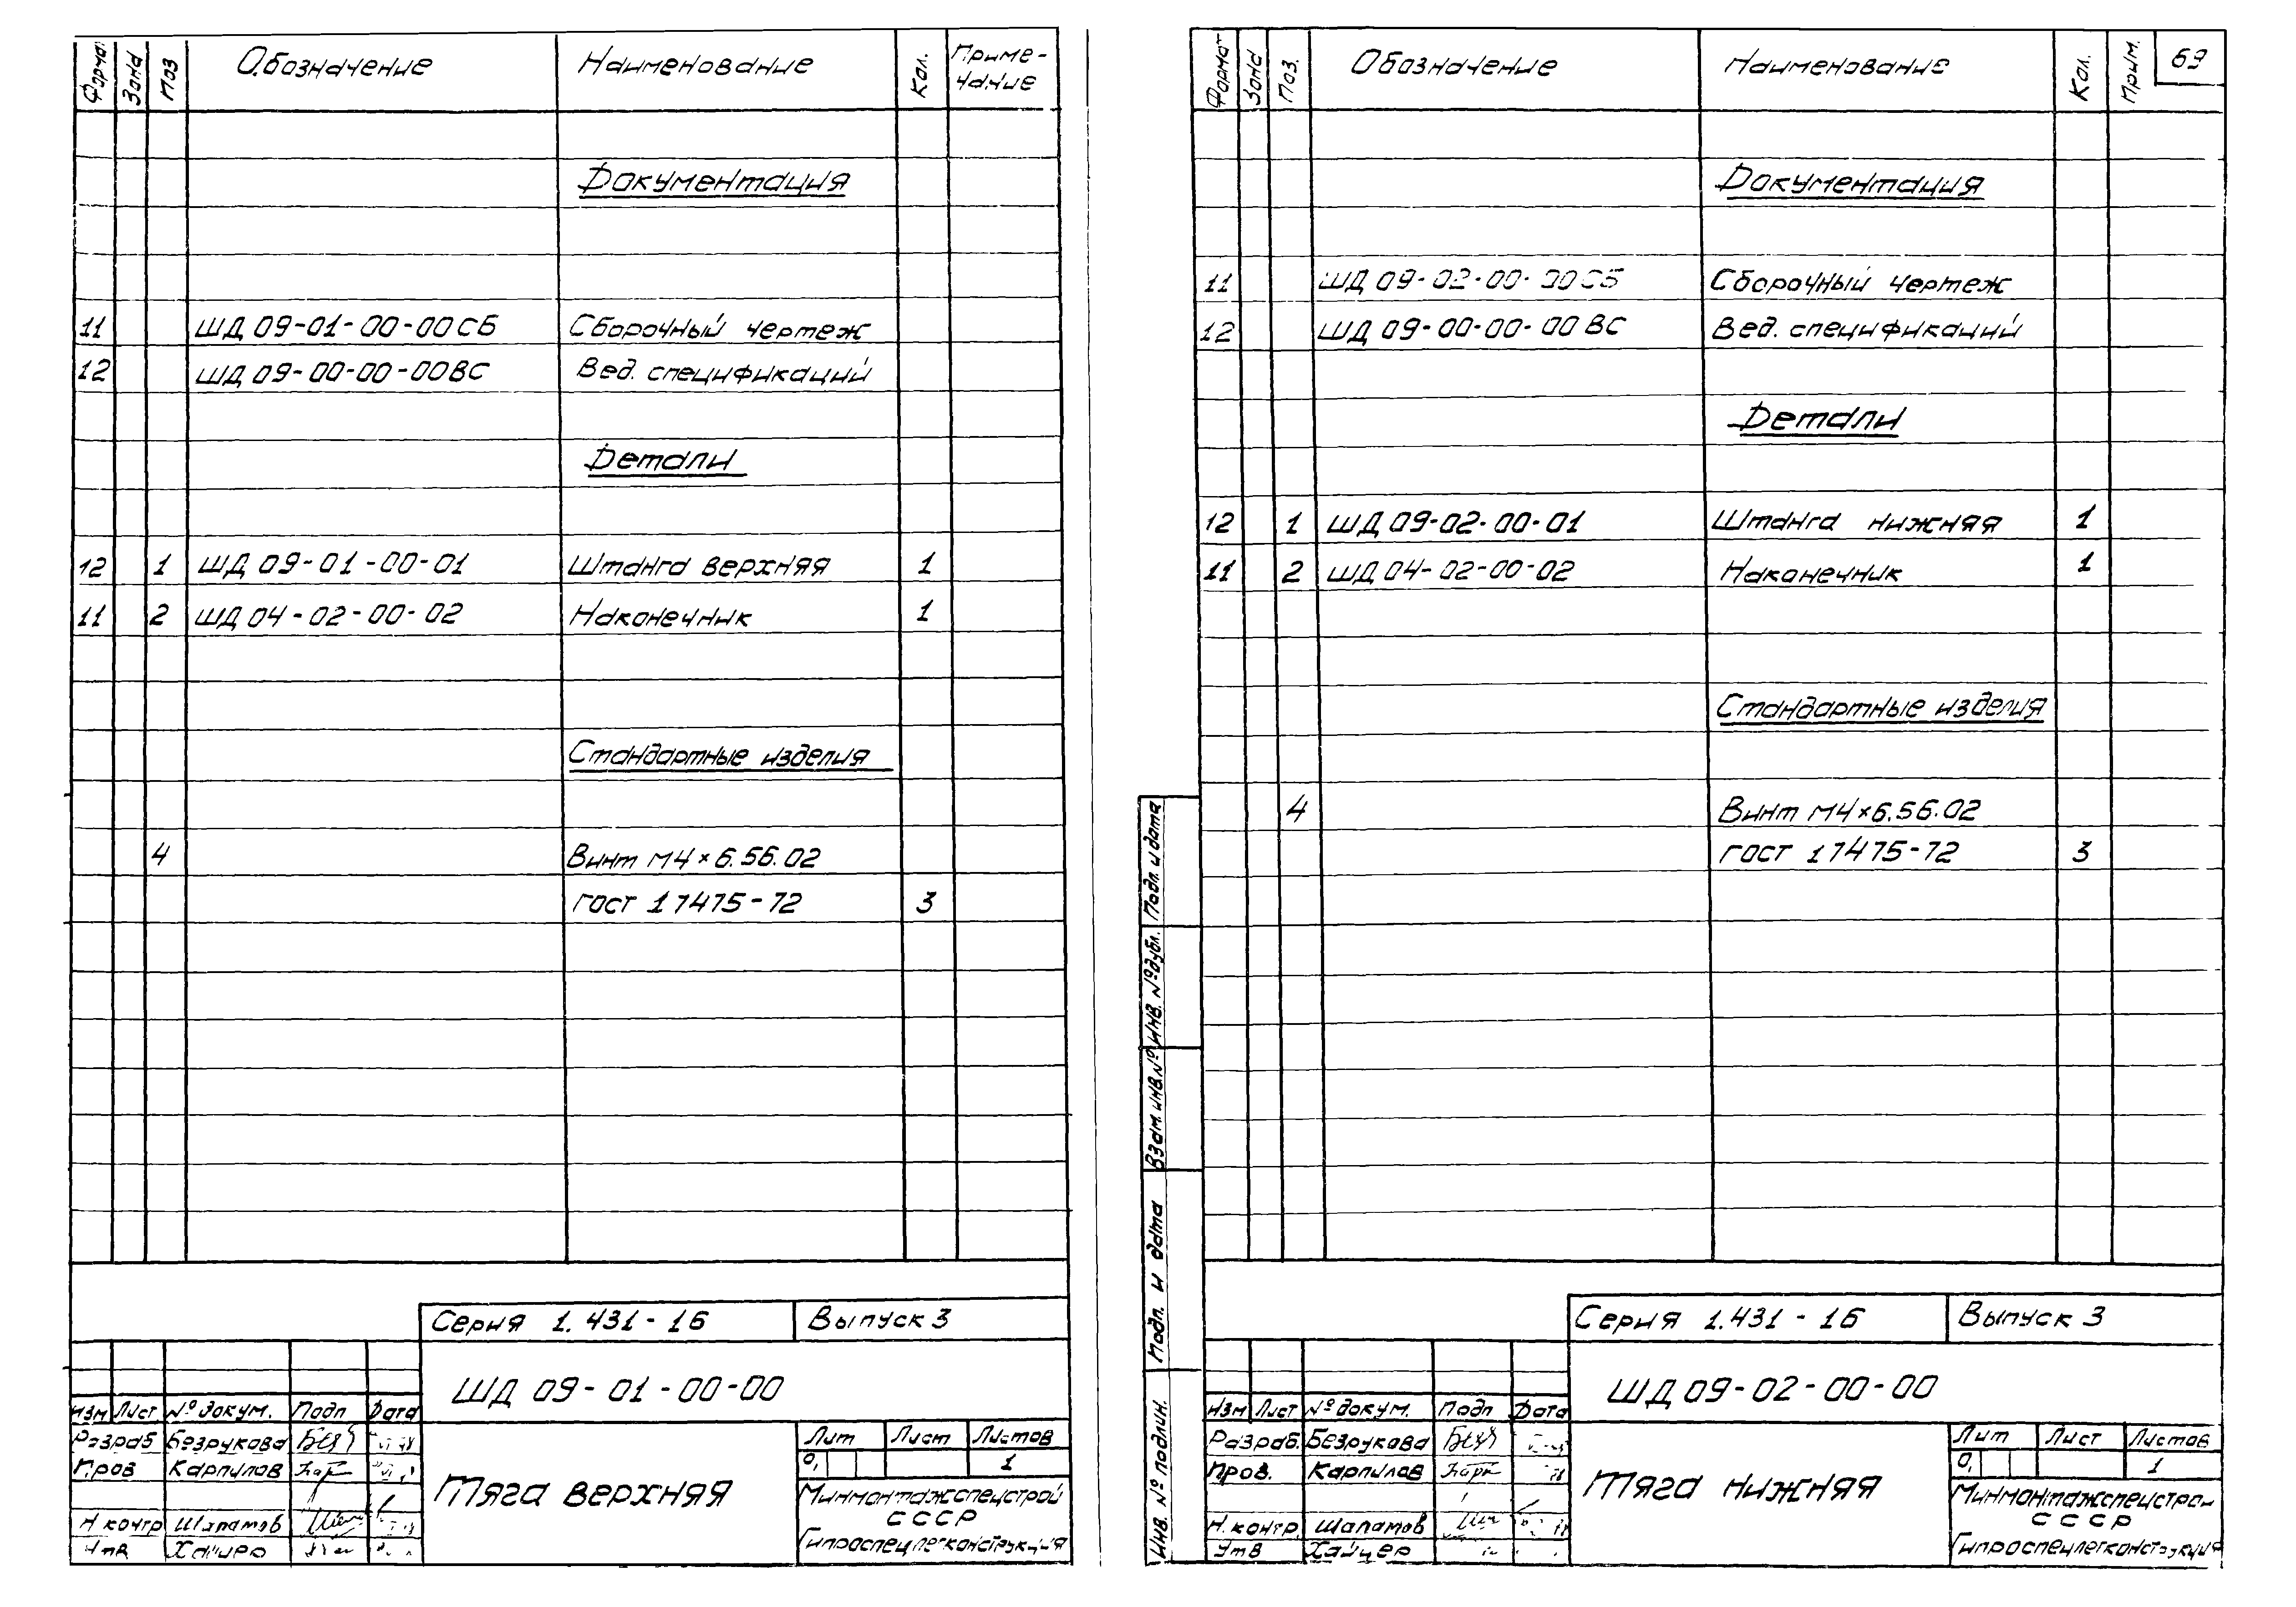 Форма. Зона Поз Обозначение Наименование Кол. Приме-
чание
Документация
11 ШД 09-01-00-00СБ Сборочный чертеж
12 ШД 09-00-00-00ВС Вед. спецификаций
Детали
12 1 ШД 09-01-00-01 Штанга верхняя 1
11 2 ШД 04-02-00-02 Наконечник 1
Стандартные изделия
4 Винт М4×6.56.02
ГОСТ 17475-72 3
Серия 1.431-16 Выпуск 3
ШД 09-01-00-00
Изм Лист № докум. Подп Дата
Разраб. Безрукова
Пров Карпилов
Н контр Шапатов
Утв
Тяга верхняя
Лит Лист Листов
О, 1
Минмонтажспецстрой
СССР
Гипроспецлегконструкция
Формат Зона Поз. Обозначение Наименование Кол. Прим. 69
Документация
11 ШД 09-02-00-00СБ Сборочный чертеж
12 ШД 09-00-00-00ВС Вед. спецификаций
Детали
12 1 ШД 09-02-00-01 Штанга нижняя 1
11 2 ШД 04-02-00-02 Наконечник 1
Стандартные изделия
4 Винт М4×6.56.02
ГОСТ 17475-72 3
Инв. № подлин. Подп. и дата Взам. инв. № Инв. № дубл. Подп. и дата
Серия 1.431-16 Выпуск 3
ШД 09-02-00-00
Изм Лист № докум. Подп Дата
Разраб. Безрукова
Пров. Карпилов
Н. контр. Шапатов
Утв Хайцер
Тяга нижняя
Лит Лист Листов
О, 1
Минмонтажспецстрой
СССР
Гипроспецлегконструкция